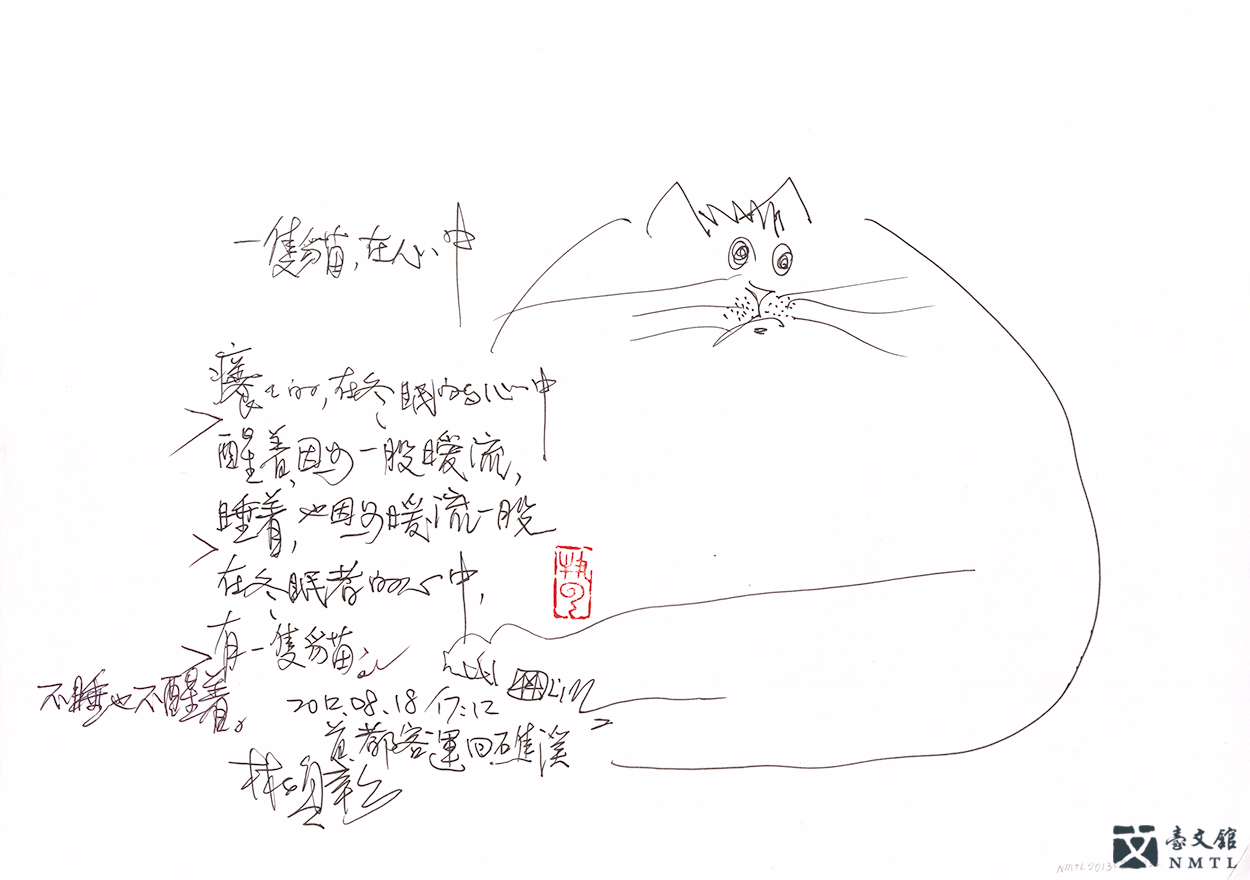 一隻貓，在人心中
癢癢的，在冬眠的心中
醒著，因為一股暖流，
睡著，也因為暖流一股
在冬眠者的心中，
有一隻貓；
不睡也不醒着。
2012.08.18 17:12
首都客運回礁溪
林煥彰
林 Lin
臺文館
NMTL
NMTL2013